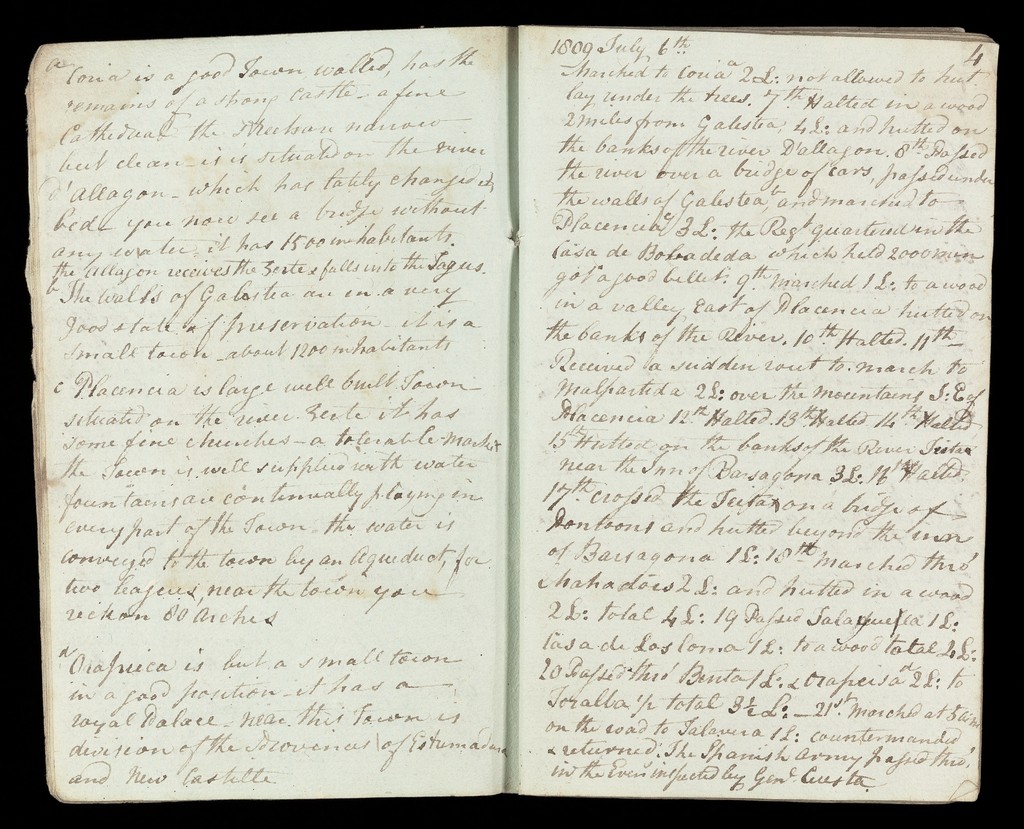 a Coria is a good Town walled, has the
remains of a strong castle - a fine
Cathedral the streets are narrow
but clean - is is situated on the river
d'Allagon - which has lately changed its
bed - you now see a bridge without
any water, it has 1500 inhabitants.
the Allagon receives the Zerte & falls into the Tagus.
b The walls of Galestea are in a very
good state of preservation - it is a
small town - about 1200 inhabitants
c Placencia is large well built Town
situated on the river Zerte it has
some fine churches - a tolerable market
the Town is well supplied with water
fountains are continually playing in
every part of the Town - the water is
conveyed to the town by an Aqueduct, for
two leagues, near the town you
reckon 80 Arches
d Orapieca is but a small town
in a good position - it has a
royal Palace - near this Town is
division of the Provinces of Estremadura
and New Castille
1809 July 6th 4
Marched to Coria a 2 L: not allowed to hut
lay under the trees. 7th Halted in a wood
2 miles from Galestea, 4 L: and hutted on
the banks of the river D'allagon. 8th Passed
the river over a bridge of cars, passed under
the walls of Galestea b, and marched to
Placencia c 3 L: the Regt quartered in the
Casa de Bobadeda which held 2000 men
got a good billet. 9th Marched 1 L: to a wood
in a valley East of Placencia hutted on
the banks of the River. 10th Halted. 11th
Received a sudden rout to march to
Malpartida 2 L: over the mountains S: E of
Placencia 12th Halted 13th Halted 14th Halted
15th Hutted on the banks of the River Tietar
near the Inn of Barsagona 3 L: 16th Halted.
17th crossed the Tietar on a bridge of
Pontoons and hutted beyond the inn
of Barsagona 1 L: 18th marched thro'
Mahadois 2 L: and hutted in a wood
2 L: total 4 L: 19 Passed Talayuella 1 L:
Casa de Las loma 1 L: to a wood total 4 L:
20 Passed thro' Benta 1 L: & Orapeisa d 2 L: to
Toralba ½ total 3½ L: - 21st Marched at 5 am
on the road to Talavera 1 L: countermanded
& returned. The Spanish Army passed thro'
in the Even inspected by Genl Cuesta.